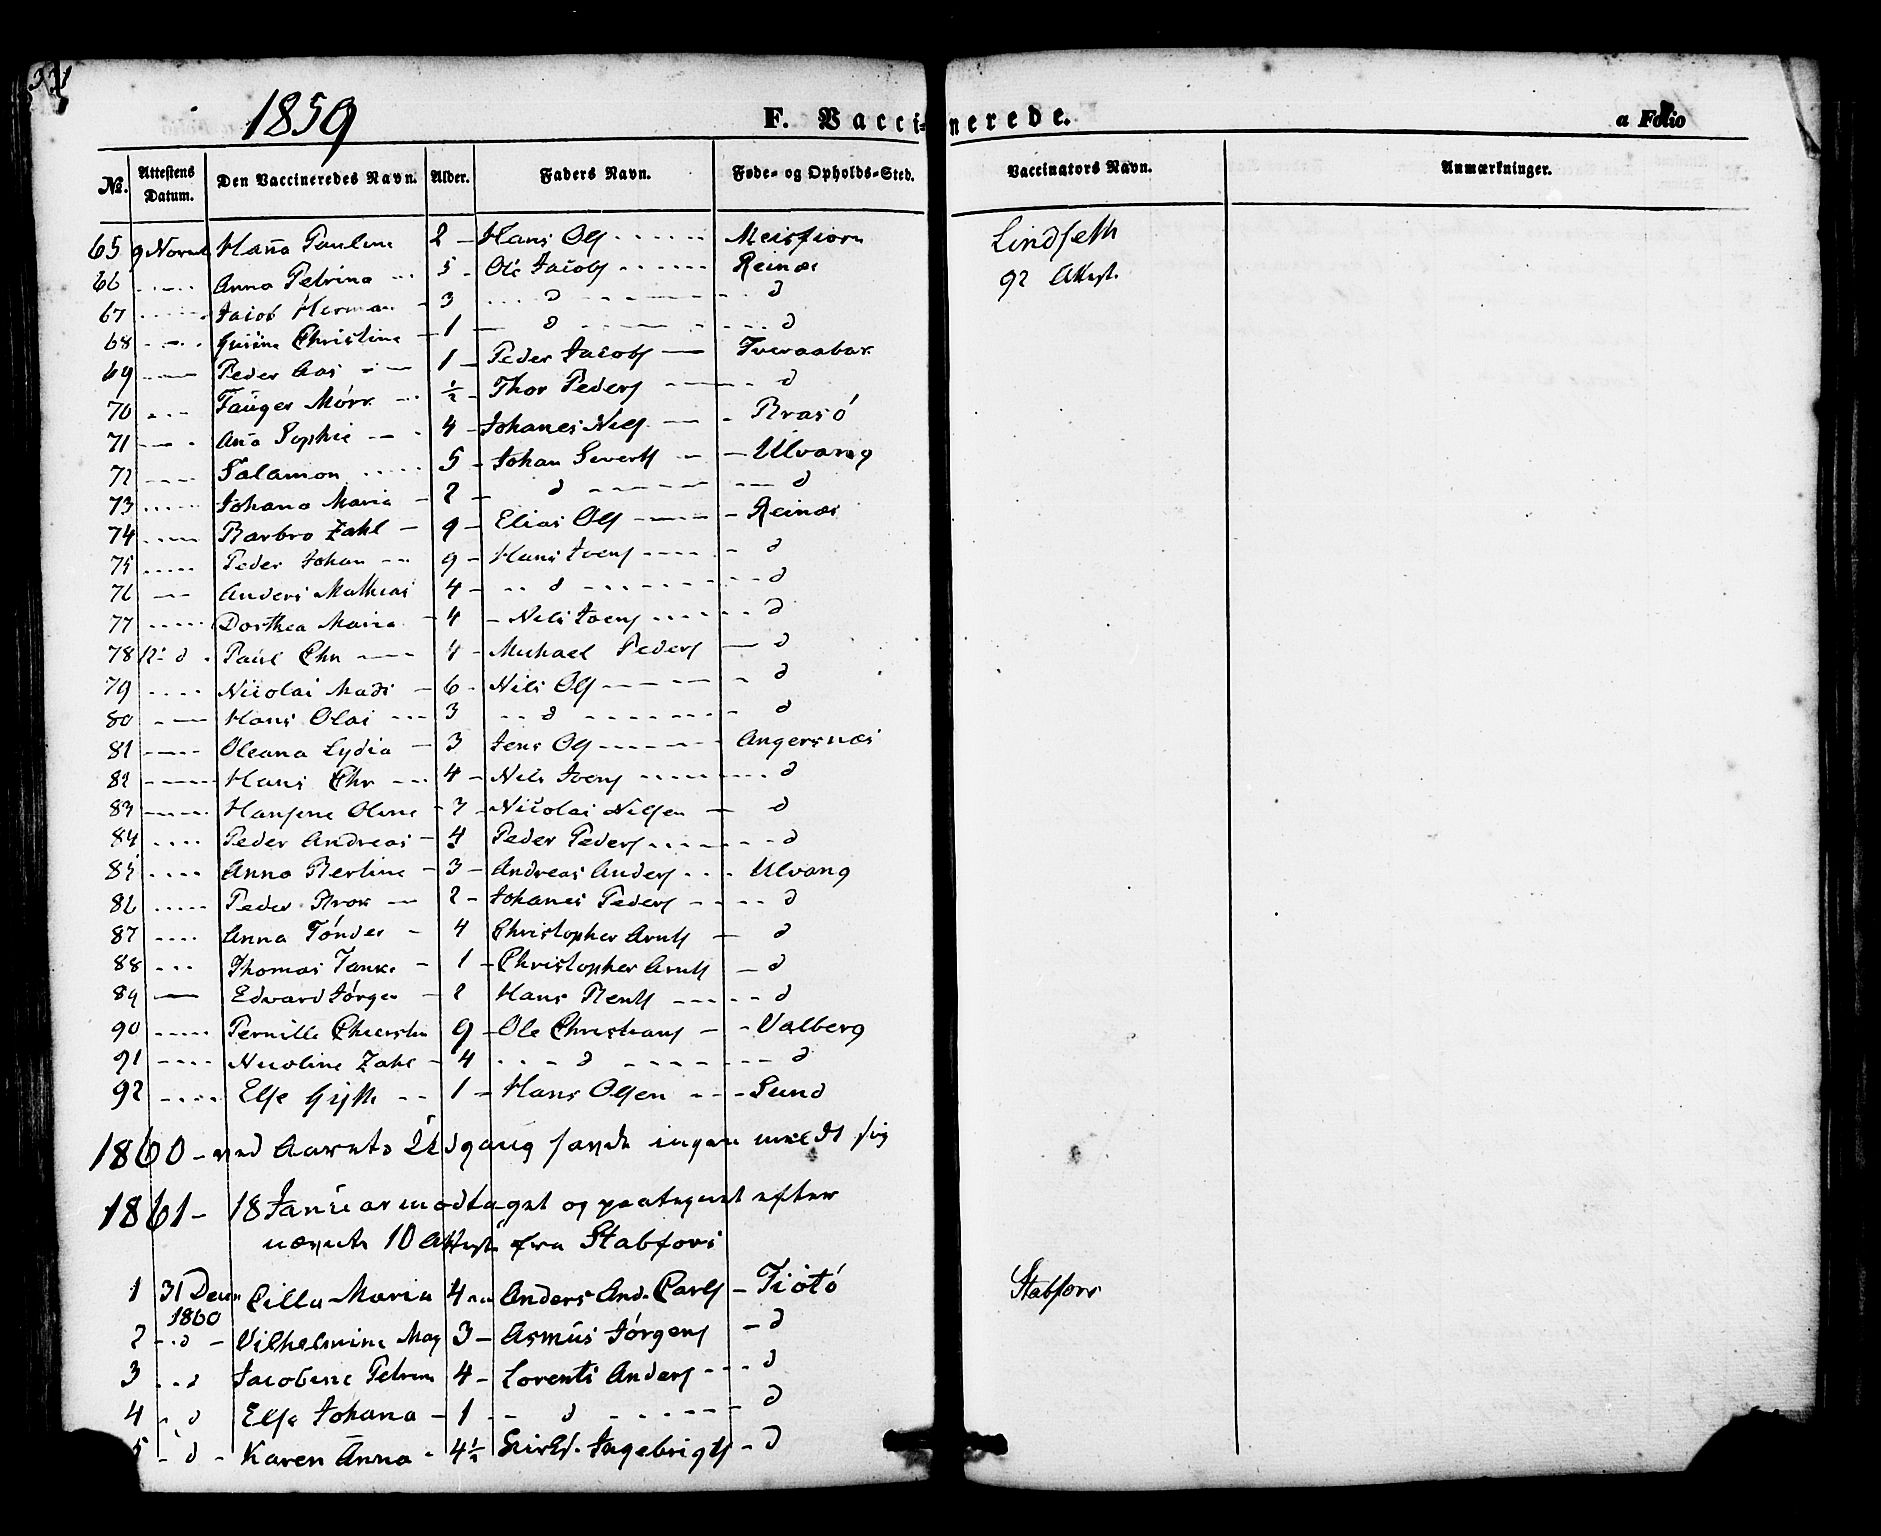 1859 F. Vaccinerede. a Folio
No. Attestens Datum. Den Vaccineredes Navn. Alder. Faders Navn. Føde- og Opholds-Sted. Vaccinators Navn. Anmærkninger.
65 9 Hana Pauline 2 – Hans Ols Meisfiorn Lindseth
66 Anna Petrina 5 – Ole Jacobs Reinæs 92 Attest.
67 Jacob Herman – 3 d d
68 Christine – 1 – d d
69 Peder Aas 1 – Peder Jacobs Tveraabak
70 ½ – Thor Peders d
71 Ana Sophie 4 – Johanes Niels Brasö
72 Salamon 5 – Johan Siverts Ulvang
73 Johana Maria – 2 – d d
74 Barbro Zahl – 9 – Elias Ols Reinæs
75 Peder Johan 9 – Hans Ivers d
76 Anders Mathias 4 – d d
77 Dorthea Maria – 4 – Nils Ivers d
78 12 d Paul Chr 4 – Michael Peders d
79 Nicolai Mads – 6 – Nils Ols d
80 Hans Olai 3 d d
81 Oleana Lydia – 3 Jens Ols Angersnæs
82 Hans Chr 4 – Nils Ivers d
83 Hansine Oline – 7 – Nicolai Nilsen d
84 Peder Andreas – 4 Peder Peders d
85 Anna Berline – 3 – Andreas Anders Ulvang
86 Peder Brok 2 – Johanes Peders d
87 Anna Tönder – 4 Christopher Arnts d
88 Thomas Tanke – 1 – Christopher Arnts d
89 Edvard Jörgen – 2 Hans Bents d
90 Pernille 9 – Ole Christians Valberg
91 Nicoline Zahl – 4 d d
92 Else 1 – Hans Olsen Sund
1860 – ved Aarets Udgang havde ingen meldt sig
1861 – 18 Januar modtaget og paategnet efter
nævnte 10 Attester fra Stabfors
1 31 Decem 1860 Cilla Maria 4 Anders And. Carls – Tiötö Stabfors
2 d – Vilhelmine Mag 3 – Asmus Jörgens – d
3 d Jacobine Petrine 4 – Lorents Anders d
4 d Else Johana – 1 d d
5 d – Karen Anna – 4½ Ingebrigts – d